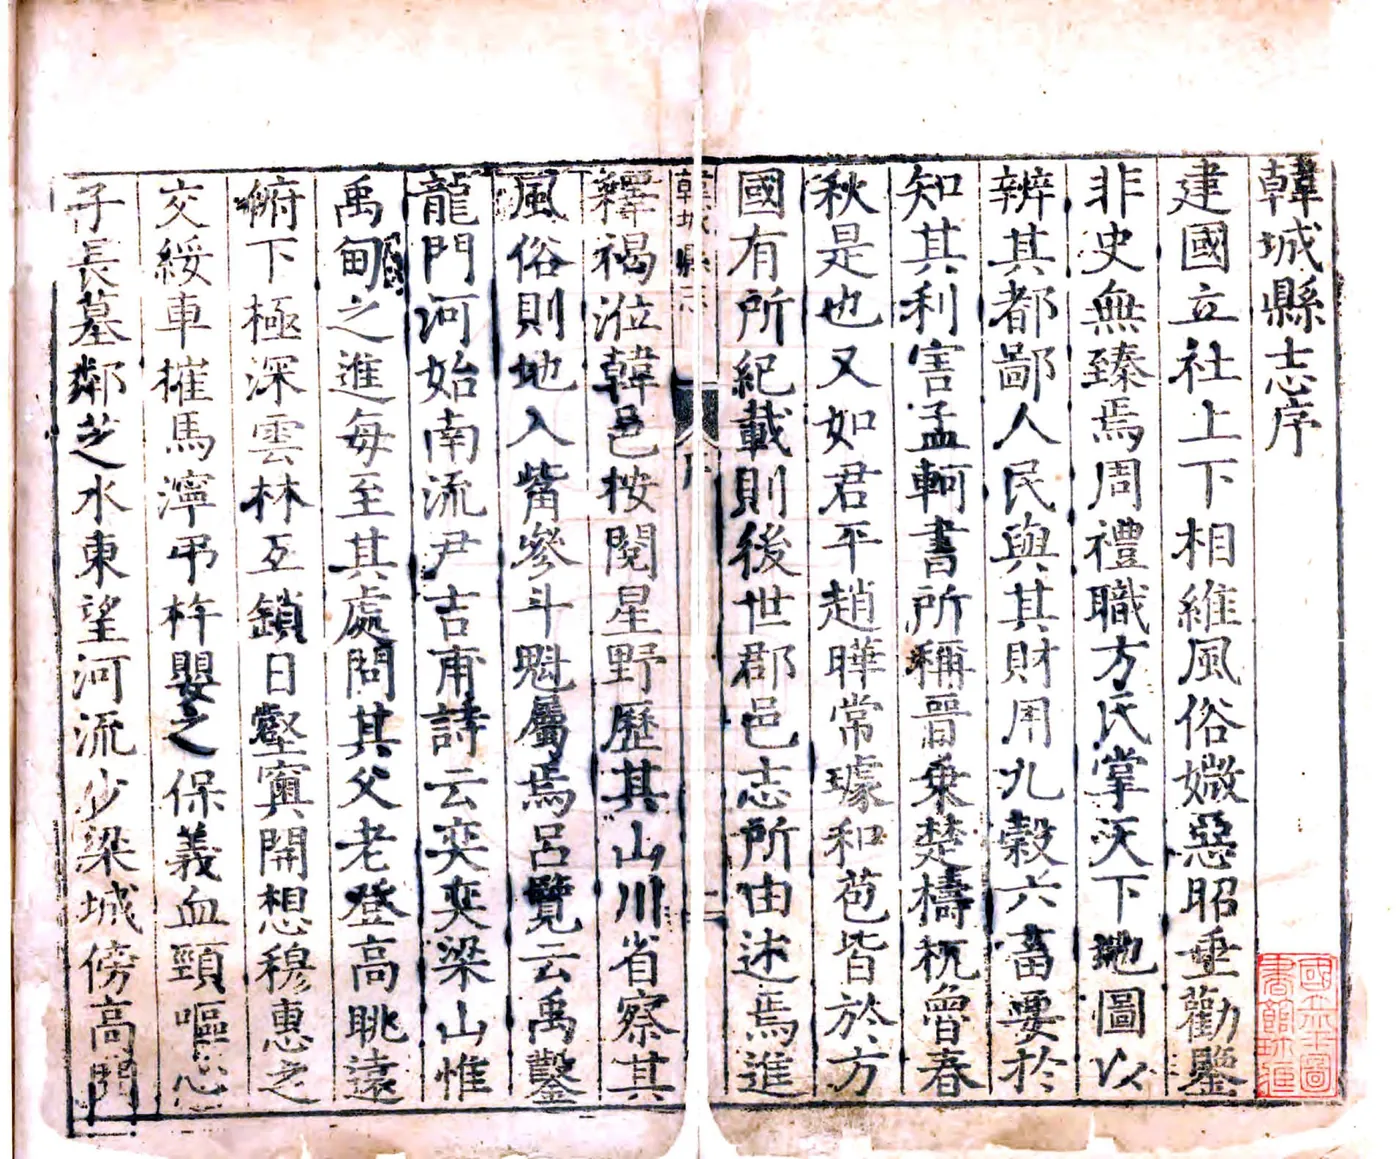 韓城縣志序
建國立社上下相維風俗媺惡昭垂勸鑒
非史無臻焉周禮職方氏掌天下地圖以
辨其都鄙人民與其財用九穀六畜要於
知其利害孟軻書所稱晉乘楚檮杌魯春
秋是也又如君平趙曄常璩和苞皆於方
國有所紀載則後世郡邑志所由述焉進
韓城縣志 序 二
釋褐涖韓邑按閱星野歷其山川省察其
風俗則地入觜參斗魁屬焉呂覽云禹鑿
龍門河始南流尹吉甫詩云奕奕梁山惟
禹甸之進每至其處問其父老登高眺遠
俯下極深雲林互鎖日壑寅開想穆惠之
交綏車摧馬濘弔杵嬰之保義血頸嘔心
子長墓鄰芝水東望河流少梁城傍高門
國立北平圖書館珍藏